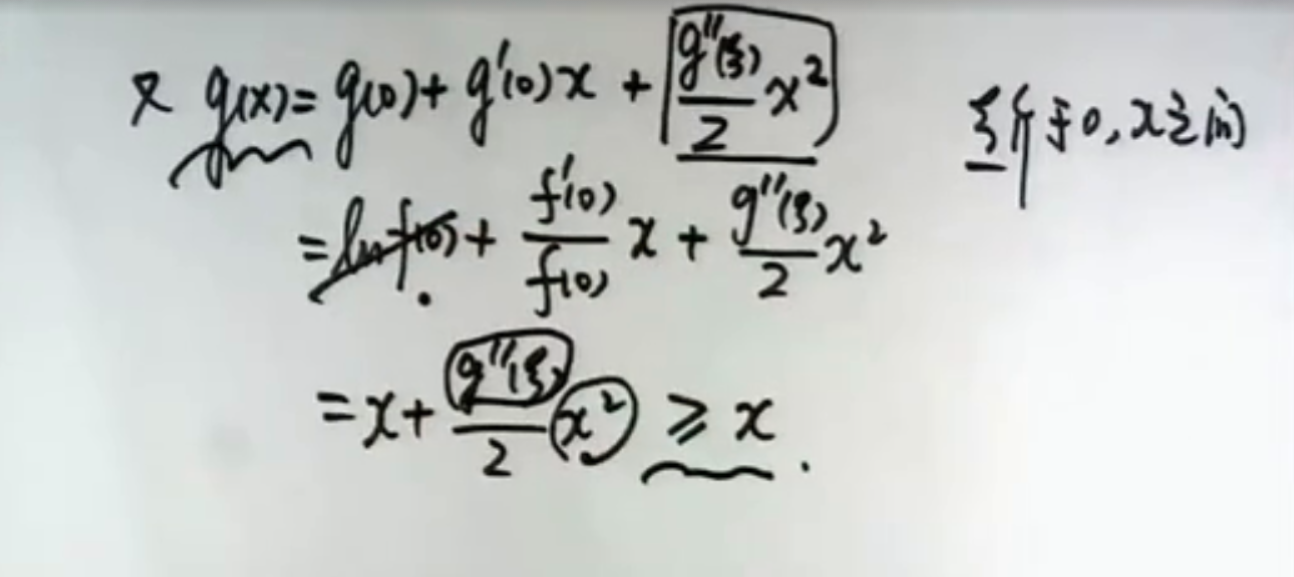 又 g(x) = g(0) + g'(0)x + g''(ξ)/2 x² ξ介于0, x之间
= ln f(0) + f'(0)/f(0) x + g''(ξ)/2 x²
= x + g''(ξ)/2 x² ≥ x.